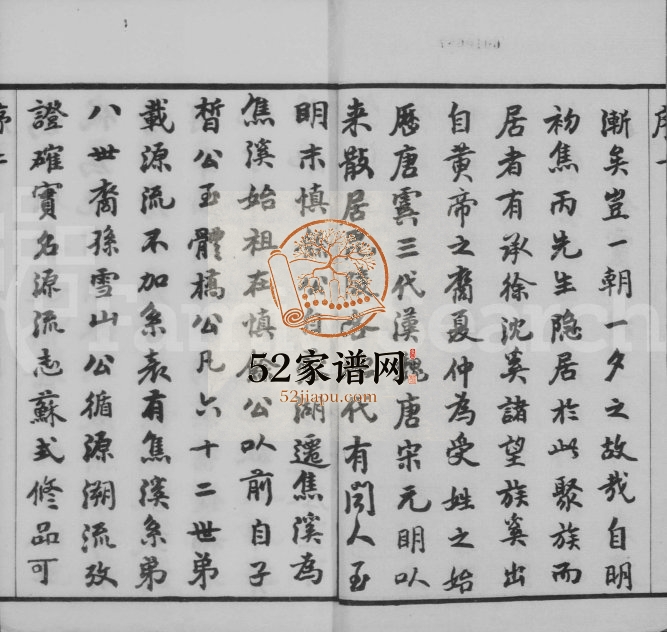 漸矣豈一朝一夕之故哉自明
初焦丙先生隐居於此聚族而
居者有承徐沈奚諸望族奚出
自黄帝之裔夏仲為受姓之始
歷唐虞三代漢魏唐宋元明以
来散居代有闻人至
明末慎公自湖遷焦溪為
焦溪始祖在慎公以前自子
皙公至體橋公凡六十二世第
載源流不加系表有焦溪系第
八世裔孫雪山公循源溯流攷
證確實名源流志蘇式修品可
52家谱网
52jiapu.com